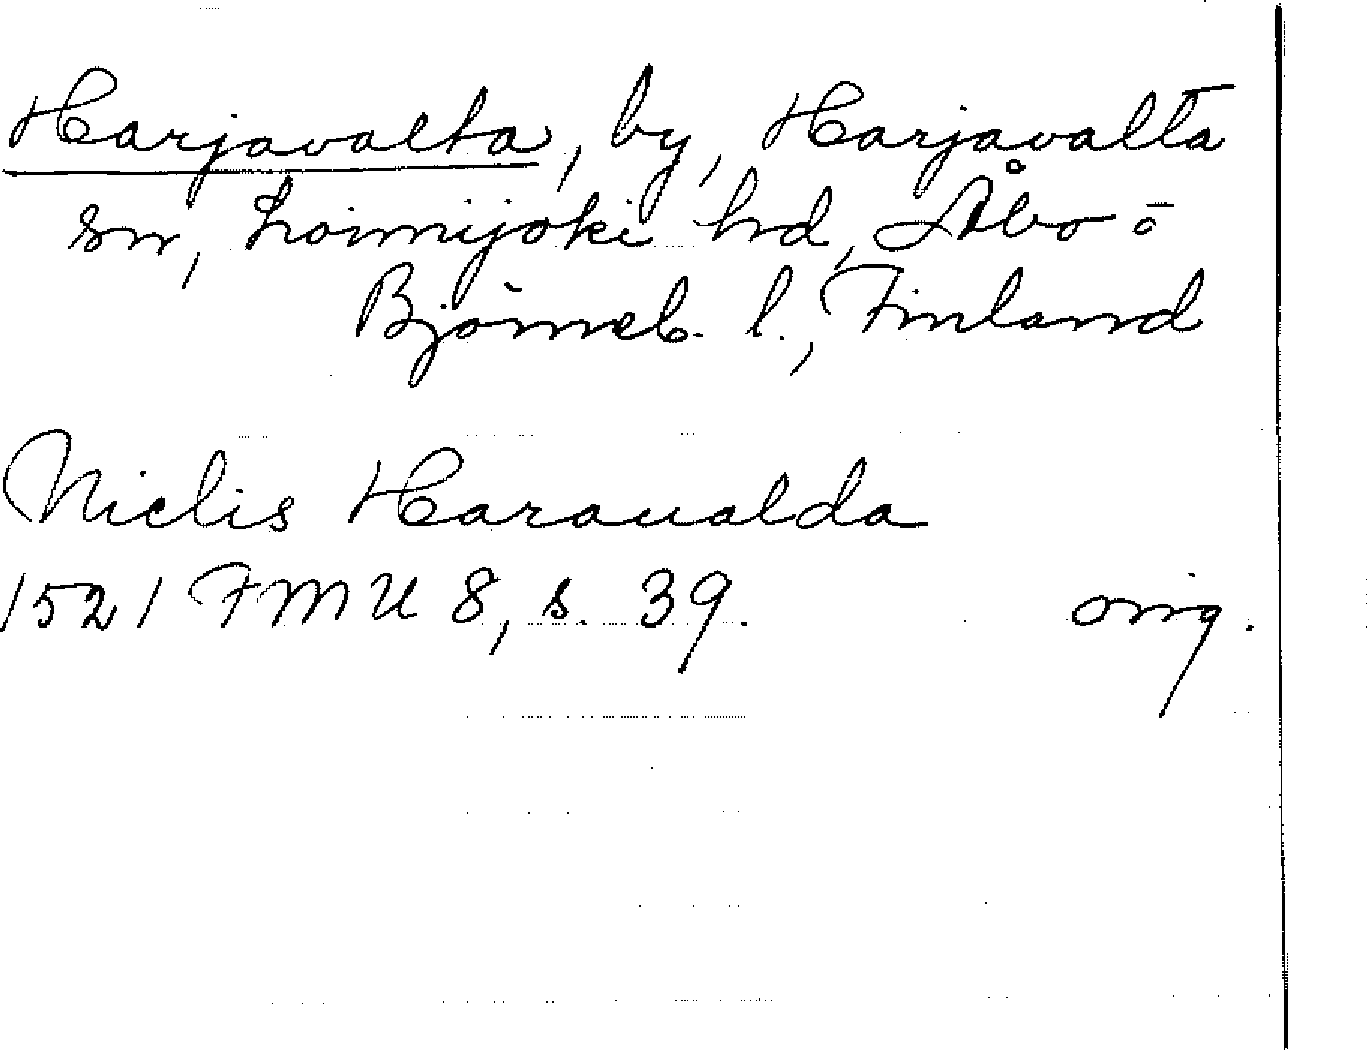 Harjavalta, by, Harjavalta
sn, Loimijoki hd, Åbo o
Björneb. l., Finland
Niclis Haraualda
1521 FMU 8, s. 39. orig.